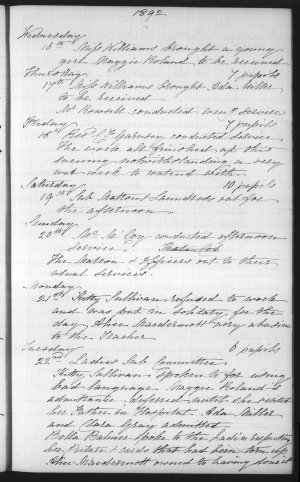 1892
Wednesday
16th Miss Williams brought a young
girl Maggie Roland to be received
Thursday 7 pupils
17th Miss Williams brought Ada Miller
to be received
Mr conducted service
Friday 7 pupils
18th conducted service
The work all finished up this
evening notwithstanding a very
wet week to contend with.
Saturday 10 pupils
19th Sub Matron & Laundress out for
the afternoon.
Sunday
20th Mr Mc Coy conducted afternoon
service.
The Matron & Officers out to their
usual services.
Monday
21st Katy Sullivan refused to work
and was put in solitary for the
day, Alice Macdermott very abusive
to the Teacher
Tuesday 8 pupils
22nd Ladies Sub Committee.
Katy Sullivan spoken to for using
bad language. Maggie Roland's
admittance deferred until she visited
her Father in Hospital. Ada Miller
and Clara Gray admitted.
Bella spoke to the Ladies respecting
her Picture & cards that had been torn up
Alice Macdermott owned to having done it